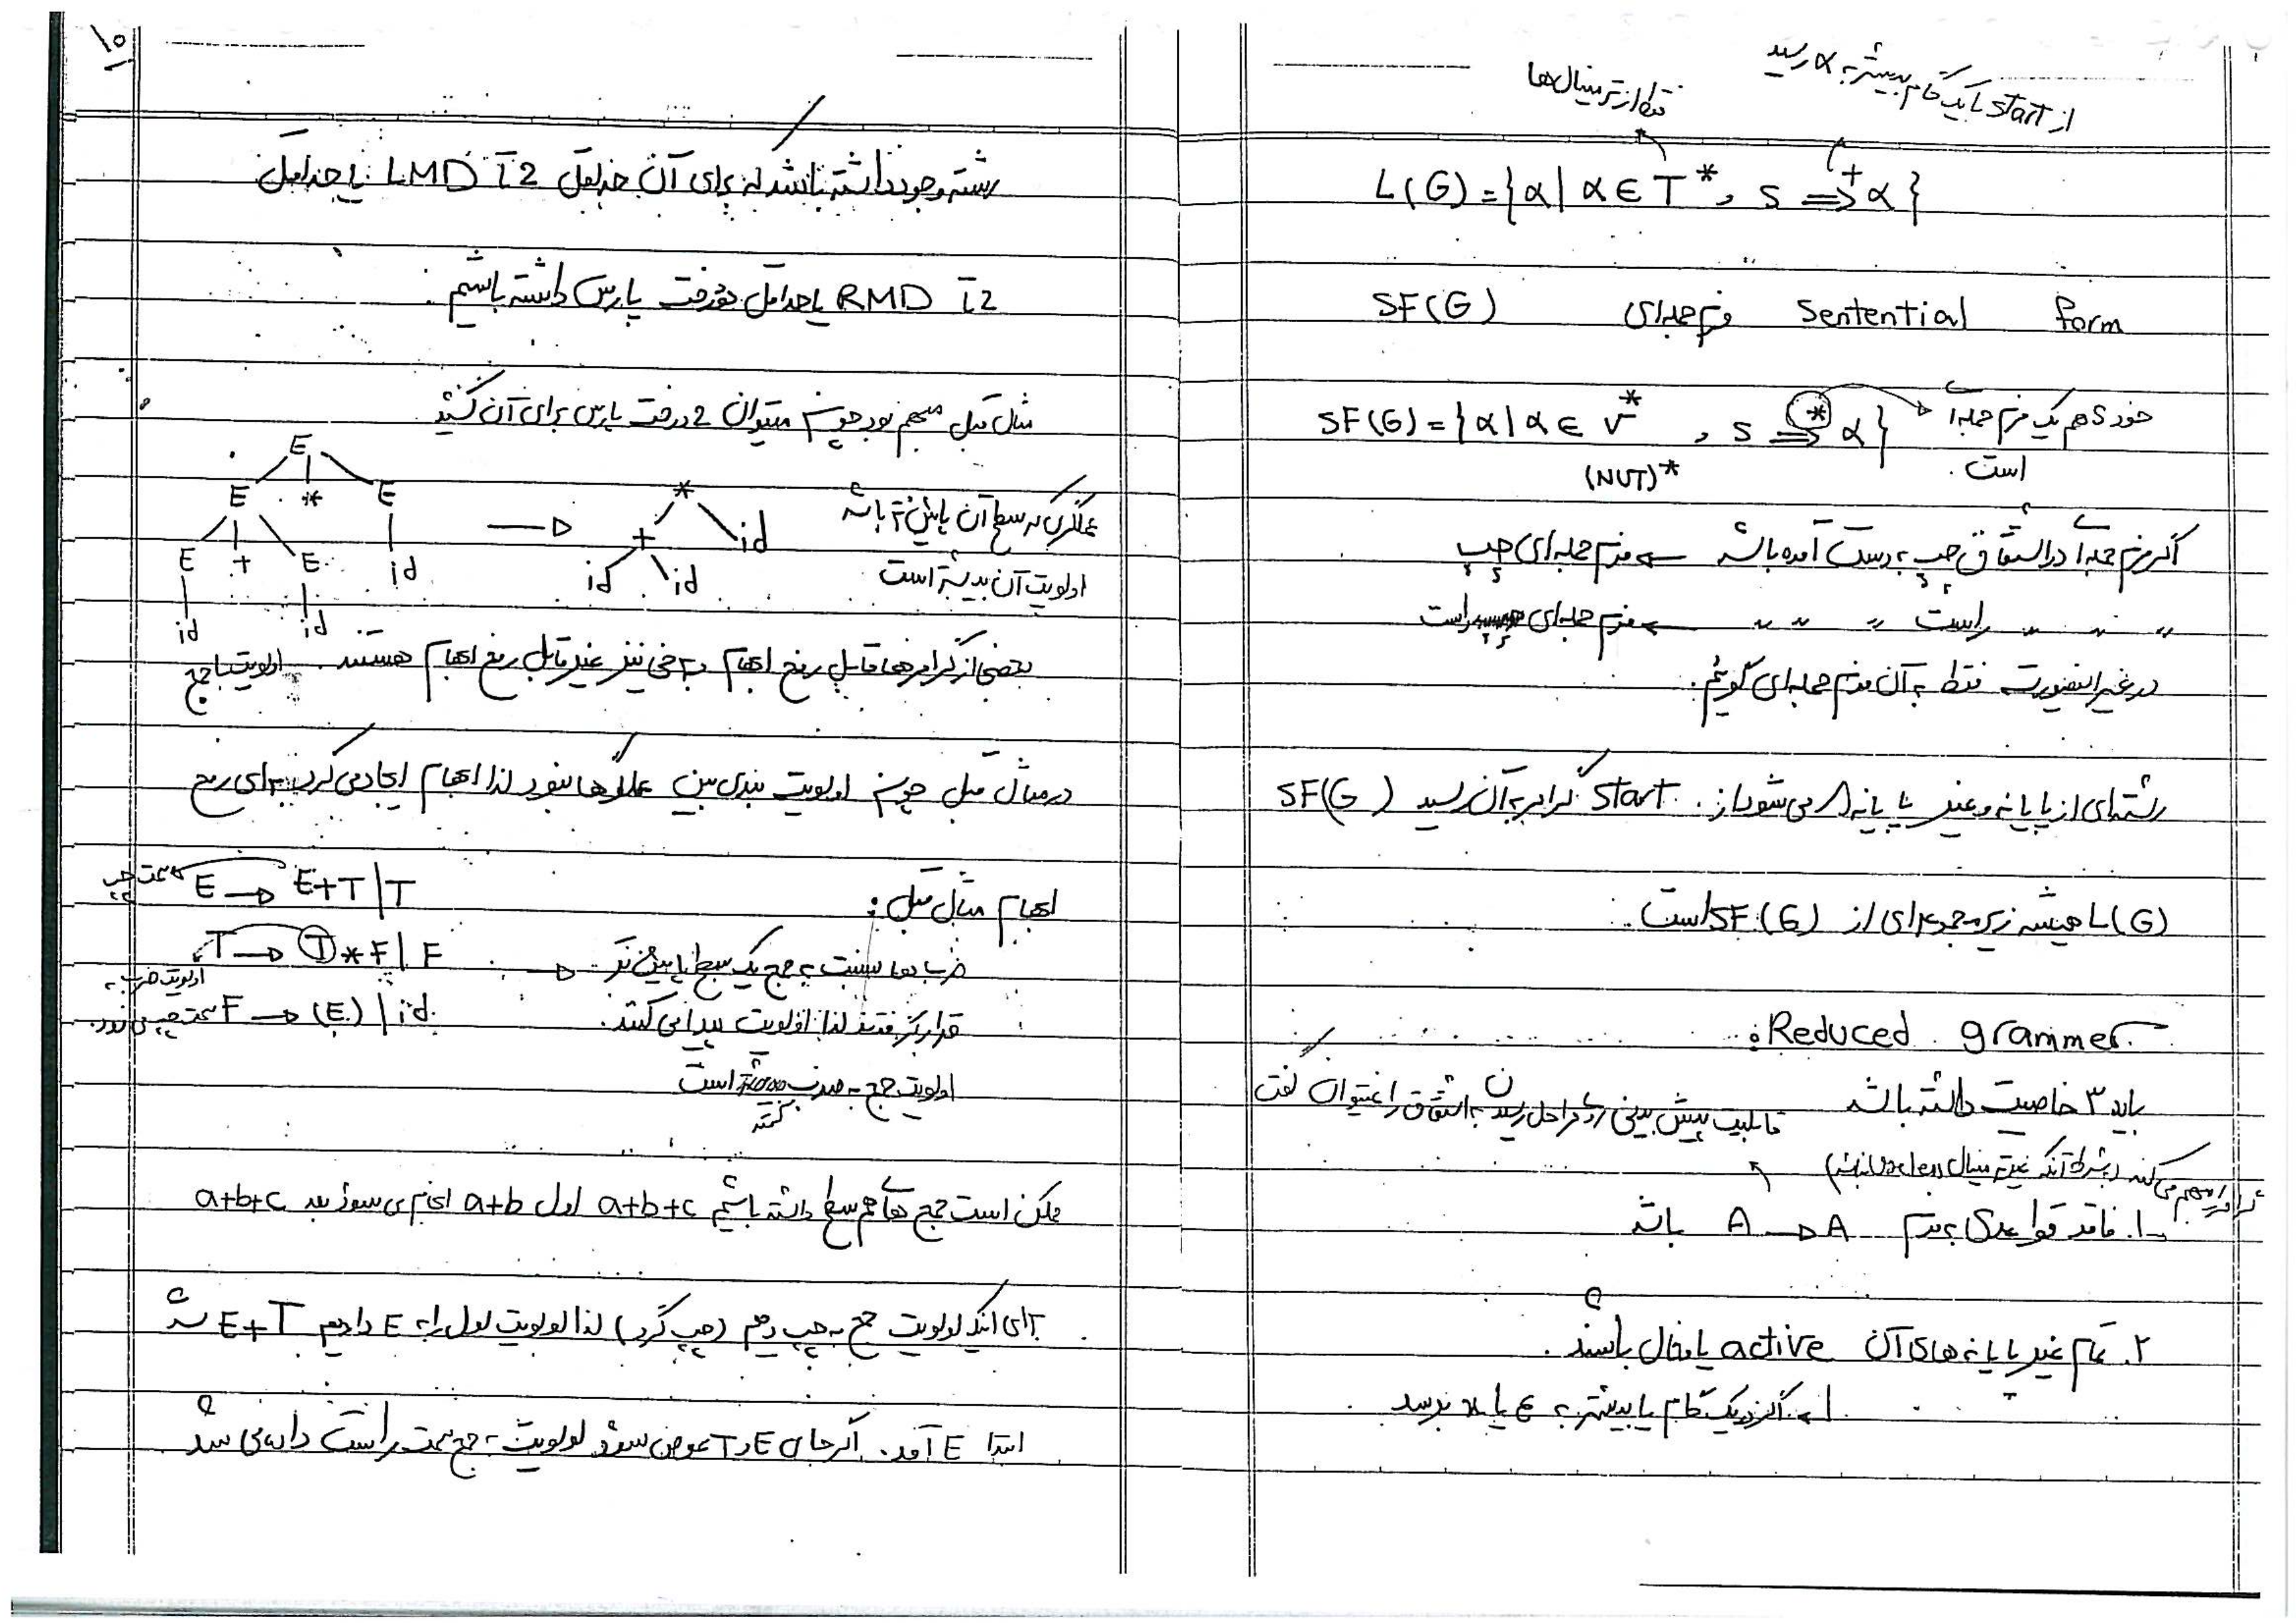 از start با یک گام یا بیشتر به α رسید
فقط از ترمینال‌ها
L(G) = {α | α ∈ T*, S ⇒+ α}
SF(G) فرم جمله‌ای Sentential form
SF(G) = {α | α ∈ V*, S ⇒* α} خود S هم یک فرم جمله‌ای
(NUT)* است.
اگر فرم جمله‌ای در اشتقاق چپ به دست آمده باشد ← فرم جمله‌ای چپ
" " " راست " " " ← فرم جمله‌ای راست
در غیر اینصورت فقط به آن فرم جمله‌ای گوئیم.
رشته‌ای از پایانه و غیر پایانه که می‌شود از start گرامر به آن رسید SF(G)
L(G) همیشه زیرمجموعه‌ای از SF(G) است.
Reduced grammer:
باید ۳ خاصیت داشته باشد
قابلیت پیش بینی مراحل رسیدن به اشتقاق را نمیتوان گفت
گرامر را مبهم می‌کند (بشرط آنکه غیرترمینال useless نباشد)
۱. فاقد قواعدی به فرم A → A باشد
۲. تمام غیر پایانه های آن active یا فعال باشند.
اگر در یک گام یا بیشتر به ε یا x برسد
۱۰
رشته وجود داشته باشد که برای آن حداقل 2 تا LMD یا حداقل
2 تا RMD یا حداقل دو درخت پارس داشته باشیم.
مثال قبل مبهم بود چون میتوان 2 درخت پارس برای آن کشید
E
E * E
E + E id
id id
→
*
+ id
id id
عملگری که سطح آن پائین‌تر باشد
اولویت آن بیشتر است
بعضی از گرامرها قابل رفع ابهام و برخی نیز غیر قابل رفع ابهام هستند. اولویت با جمع
در مثال قبل چون اولویت بندی بین عملگرها نبود لذا ابهام ایجاد می کرد. برای رفع
ابهام مثال قبل:
E → E+T | T به سمت چپ
T → T * F | F
F → (E) | id
اولویت ضرب به
سمت چپ می‌رود.
ضرب ها نسبت به جمع یک سطح پایین تر →
قرار گرفتند لذا اولویت پیدا می کنند.
اولویت جمع به ضرب کمتر است
ممکن است جمع های هم سطح داشته باشیم a+b+c اول a+b انجام می شود بعد a+b+c
برای اینکه اولویت جمع به چپ دهیم (چپ گرد) لذا اولویت اول را به E دادیم E+T شد
ابتدا E آمد. اگر جای E و T عوض شود اولویت به جمع سمت راست داده می شد